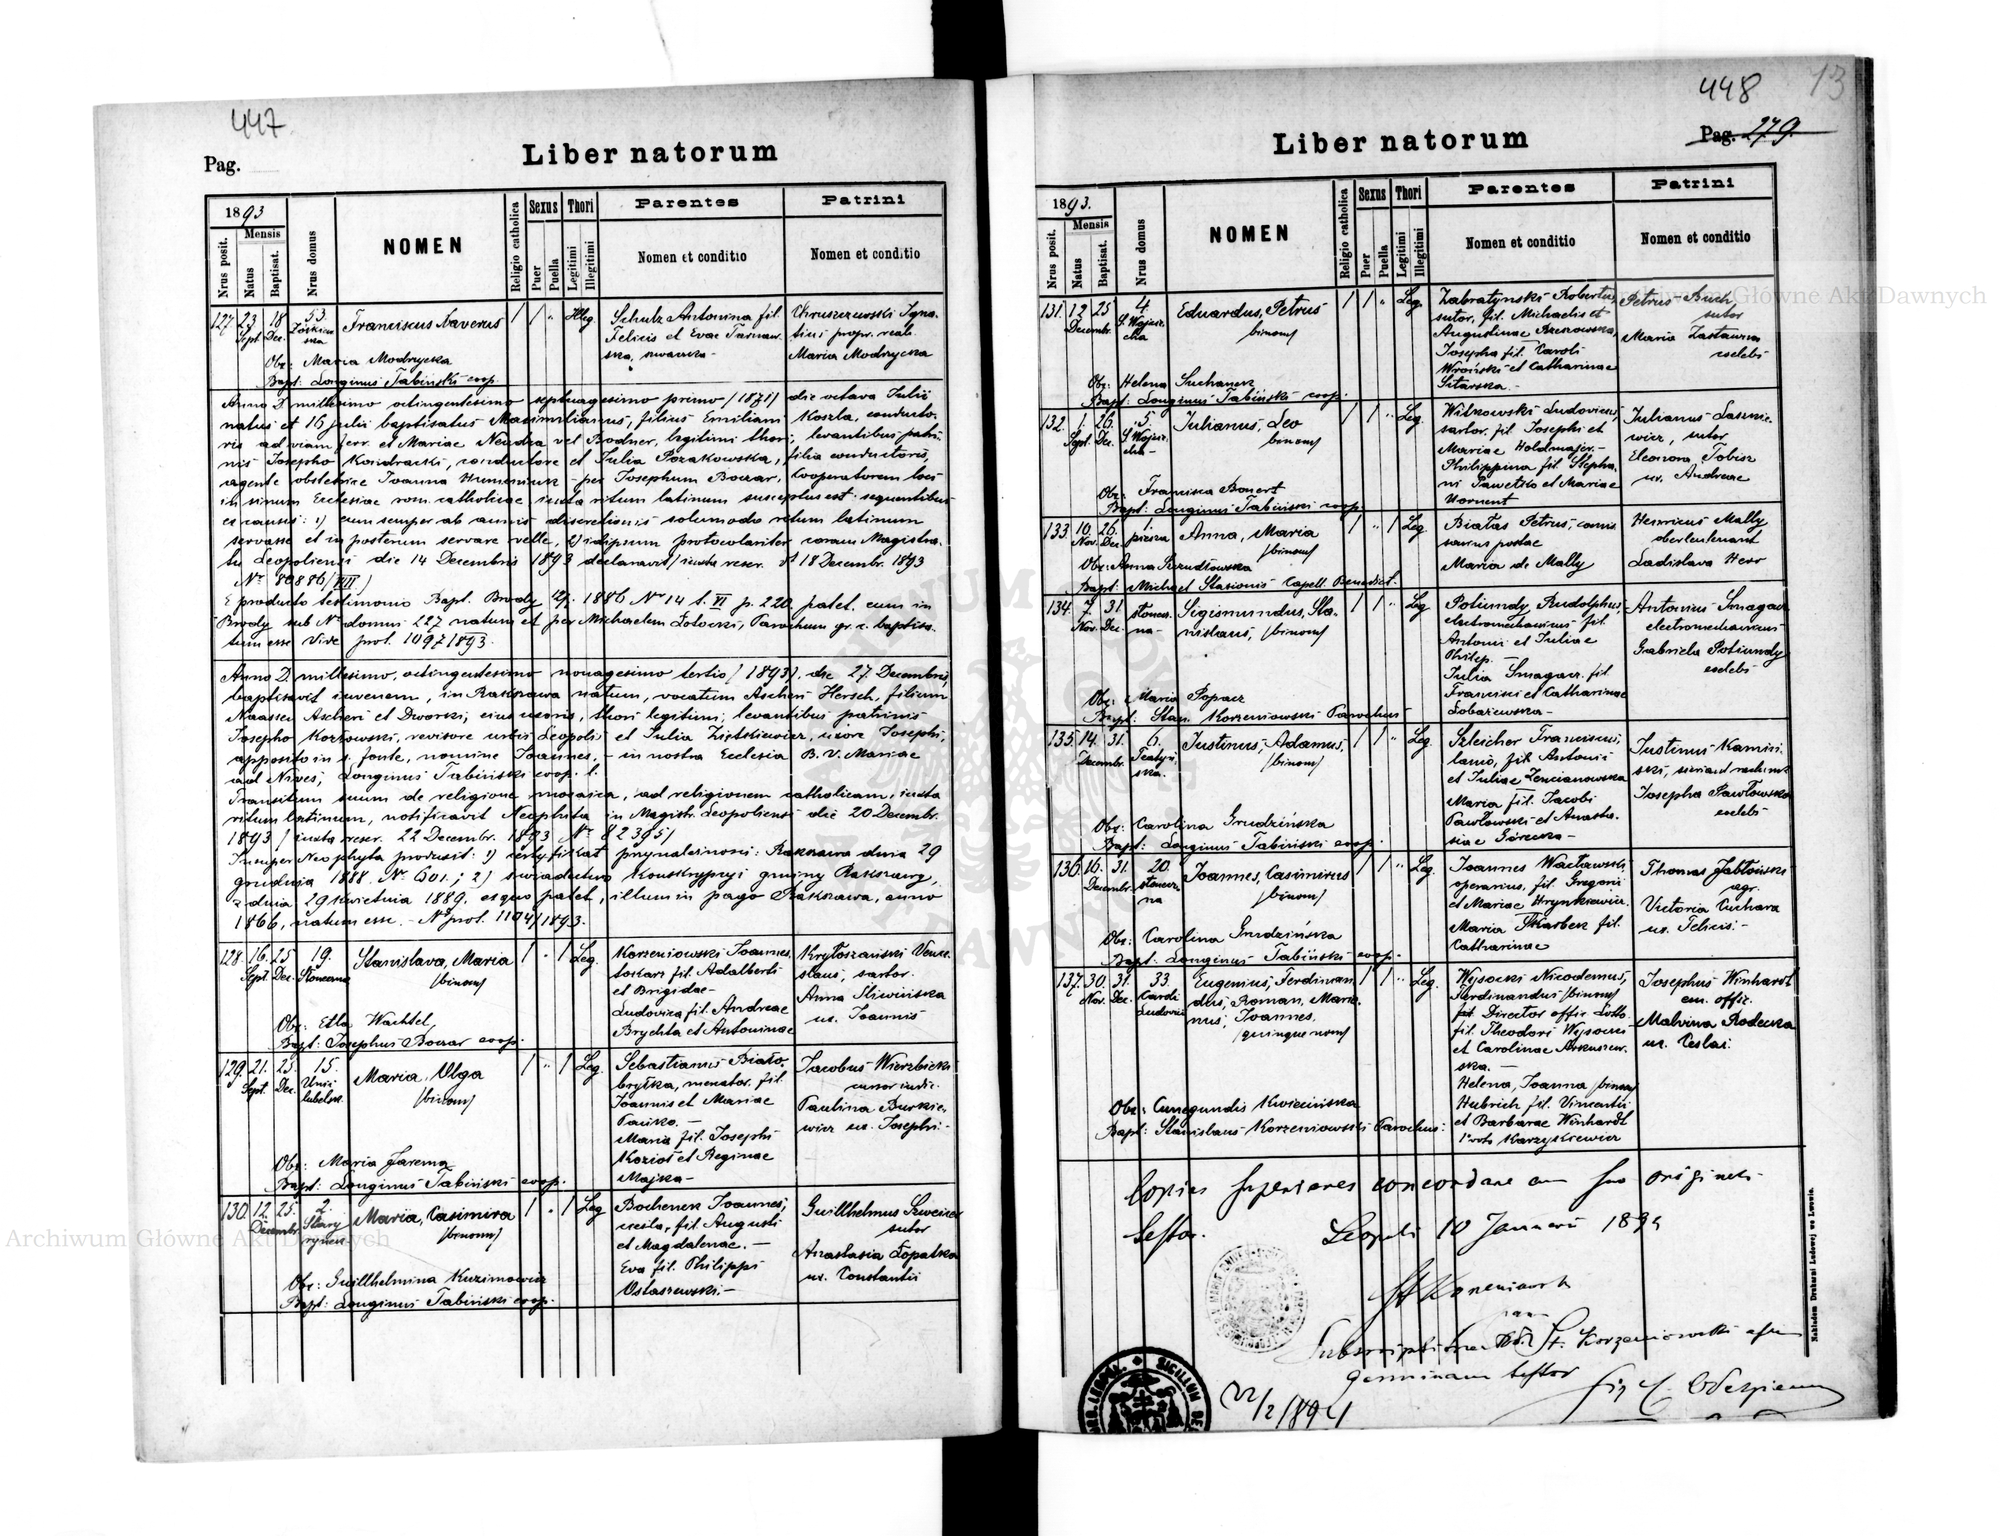 447
Pag.
Liber natorum
1893
Mensis
Nrus posit.
Natus
Baptisat.
Nrus domus
NOMEN
Religio catholica
Sexus
Puer
Puella
Thori
Legitimi
Illegitimi
Parentes
Nomen et conditio
Patrini
Nomen et conditio
127. 23 Sept. 18 Dec. 53.
Franciscus Xaverius
Illeg.
Schulz Antonina fil.
Felicis et Eva
Ignatius propr. real.
Maria Modrycka
Obs: Maria Modrycka
Bapt: Longinus Tabiński coop.
Anno D. millesimo octingentesimo septuagesimo primo /1871/ die octava Julii
natus et 16 Julii baptisatus Maximilianus, filius Emiliani Koszla, conducto-
ris ad viam ferr. et Mariae Neudra vel Bodner, legitimi thori, levantibus patri-
nis Josepho Kondracki, conductore et Julia Pozakowska, filia conductoris,
agente obstetrice Joanna - per Josephum Boczar, Cooperatorem loci
in sinum Ecclesiae rom. catholicae iuxta ritum latinum susceptus est sequentibus
ex causis: 1) cum semper ab annis discretionis solummodo ritum latinum
servasse et in posterum servare velle, 2) idipsum protocolariter coram Magistra-
tu Leopoliensi die 14 Decembris 1893 declaravit / iuxta rescr. d. 18 Decembr. 1893
Nr. 80886/VIII)
E producto testimonio Bapt. Brody 1886 Nr 14 t. VI p. 220. patet, eum in
Brody sub Nr domus 227 natum et per Michaelem Łotocki, Parochum gr. c. baptisa-
tum esse. Vide prot. 1097/1893.
Anno D. millesimo, octingentesimo nonagesimo tertio /1893/, die 27. Decembris
baptisavit iuvenem, in Rakszawa natum, vocatum Ascheri Hersch, filium
Naassen Ascheri et Dworski, eius uxoris, thori legitimi; levantibus patrinis
Josepho Kozłowski, revisore urbis Leopolis et Julia Ziętkiewicz, uxore Josephi,
apposito in s. fonte, nomine Joannes, - in nostra Ecclesia B. V. Mariae
ad Nives, Longinus Tabiński coop. l.
Transitum suum de religione mosaica, ad religionem catholicam, iuxta
ritum latinum, notificavit Neophita in Magistr. Leopoliensi die 20 Decembr.
1893 / iuxta rescr. 22 Decembr. 1893 Nr 82395/
Insuper Neophyta produxit: 1) certyfikat przynależności: Rakszawa dnia 29
grudnia 1888. Nr. 601.; 2) świadectwo Konskrypcyi gminy Rakszawy,
z dnia 29 kwietnia 1889. ex quo patet, illum in pago Rakszawa, anno
1866, natum esse. - Nr prot. 1104/1893.
128. 16. Sept. 25 Dec. 19. Słoneczna
Stanislava, Maria
/binom/
Leg.
Korzeniowski Joannes,
tokarz fil. Adalberti
et Brigidae -
Ludovica fil. Andreae
Brychta et Antoninae
Krytoszański Vence-
slaus, sartor.
Anna Śliwińska
ux. Joannis
Obs: Etla Wachtel
Bapt: Josephus Boczar coop.
129. 21. Sept. 25. Dec. 15. Unii lubelsk.
Maria, Olga
/binom/
Leg.
Sebastianus Biało-
bryłka, mercator. fil.
Joannis et Mariae
Pańko. -
Maria fil. Josephi
Kozioł et Reginae
Majka -
Jacobus Wierzbicki
cursor iudic.
Paulina Burkie-
wicz ux. Josephi -
Obs: Maria Jarema
Bapt: Longinus Tabiński coop.
130. 12. Decembr. 25. 2. Stary rynek
Maria, Casimira
/binom/
Leg.
Bochenek Joannes,
cieśla, fil. Augusti
et Magdalenae. -
Eva fil. Philippi
Ostaszewski. -
Guillhelmus Szweicer
sutor
Anastasia Łopatka
ux. Constantii
Obs: Guillhelmina Kuzimowicz
Bapt: Longinus Tabiński coop.
448
13
Pag. 279.
Liber natorum
1893.
Mensis
Nrus posit.
Natus
Baptisat.
Nrus domus
NOMEN
Religio catholica
Sexus
Puer
Puella
Thori
Legitimi
Illegitimi
Parentes
Nomen et conditio
Patrini
Nomen et conditio
131. 12 Decembr. 25 4.
Eduardus, Petrus
/binom/
Leg.
Zabratyński Robertus,
sutor, fil. Michaelis et
Augustinae Brzozowska,
Josepha fil. Caroli
Wroński et Catharinae
Sitarska. -
Petrus Buch
sutor
Maria Zastawna
coelebs
Obs: Helena Suchanek
Bapt: Longinus Tabiński coop.
132. 1. Sept. 26. Dec. 5.
Julianus, Leo
/binom/
Leg.
Witkowski Ludovicus,
sartor. fil. Josephi et
Mariae Holdmajer. -
Philippina fil. Stepha-
ni Pawetko et Mariae
Kornent
Julianus Lasznie-
wicz, sutor
Eleonora Tobisz
ux. Andreae
Obs: Francisca Bonert
Bapt: Longinus Tabiński coop.
133. 10. Nov. 26. Dec. 1. piesza
Anna, Maria
/binom/
Leg
Białas Petrus, comis
sarius postae
Maria de Mally
Henricus Mally
oberleutenant
Ladislava Herr
Obs: Anna Brzudłowska
Bapt: Michael Stasionis Capell. Benedict.
134. 7. Nov. 31. Dec. słonecz-na-
Sigismundus, Sta-
nislaus, /binom/
Leg
Potiundy Rudolphus,
electromechanicus fil.
Antonii et Juliae
Philip. -
Julia Smagacz fil.
Francisci et Catharinae
Łobażewska -
Antonius Smagacz
electromechanicus
Gabriela Potiundy
coelebs
Obs: Maria Popacz
Bapt: Stan. Korzeniowski Parochus
135. 14. Decembr. 31. 6. Teatyń-ska.
Justinus, Adamus,
/binom/
Leg.
Szleicher Franciscus,
lanio, fil. Antonii
et Juliae Zencianowska
Maria fil. Jacobi
Pawłowski et Anasta-
siae Górecka -
Justinus Kamiń-
ski,
Josepha Pawłowska
coelebs
Obs: Carolina Grudzińska
Bapt: Longinus Tabiński coop.
136. 16. Decembr. 31. 20. słonecz-na
Joannes, Casimirus
/binom/
Leg.
Joannes Wacławski,
operarius, fil. Gregorii
et Mariae Hrynkiewicz.
Maria Skarbek fil.
Catharinae
Thomas Jabłoński
agr.
Victoria Cuchara
ux. Felicis. -
Obs: Carolina Grudzińska
Bapt: Longinus Tabiński coop.
137. 30. Nov. 31. Dec. 33. Caroli Ludovici
Eugenius, Ferdinan-
dus, Roman, Maria-
nus, Joannes.
/quinque nom/
Leg.
Wysocki Nicodemus,
Ferdinandus /binom/
Director offic Lotto.
fil. Theodori Wysocki
et Carolinae Arkuszew-
ska. -
Helena, Joanna /binom/
Hubrich fil. Vincentii
et Barbarae Winhardt
1o voto Karzyskiewicz
Josephus Winhardt
em. offic.
Malvina Rodecka
ux. Ceslai.
Obs: Cunegundis Kwiecińska
Bapt: Stanislaus Korzeniowski Parochus.
Copias superiores concordare cum suo originali
testor. Leopoli 10 Januarii 1894
St Korzeniowski
Subscriptionem St. Korzeniowski esse
genuinam testor
22/2/894
Nakładem Drukarni Ludowej we Lwowie.
SIGILLUM
Archiwum Główne Akt Dawnych
Archiwum Główne Akt Dawnych